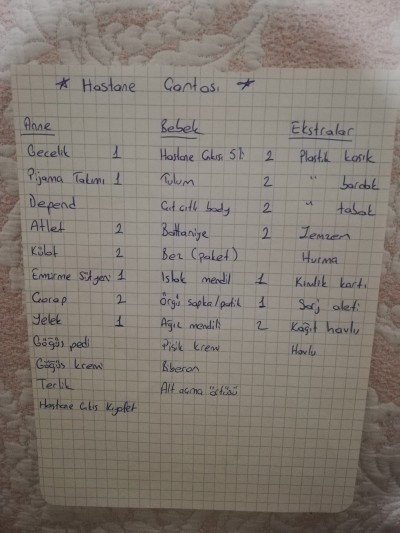 * Hastane Çantası *
Anne Bebek Ekstralar
Gecelik 1 Hastane Çıkışı 5'li 2 Plastik kaşık
Pijama Takımı 1 Tulum 2 " bardak
Depend Çıt çıtlı body 2 " tabak
Atlet 2 Battaniye 2 Zemzem
Külot 2 Bez (paket) Hurma
Emzirme Sütyeni 1 Islak mendil 1 Kimlik kartı
Çorap 2 Örgü şapka/patik 1 Şarj aleti
Yelek 1 Ağız mendili 2 Kağıt havlu
Göğüs pedi Pişik krem Havlu
Göğüs kremi Biberon
Terlik Alt açma örtüsü
Hastane Çıkış Kıyafet